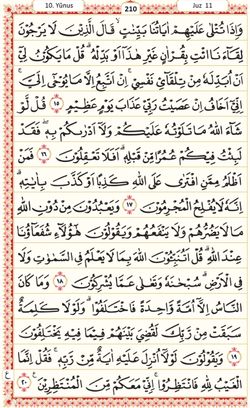 10. Yûnus 210 Juz 11
وَاِذَا تُتْلٰى عَلَيْهِمْ اٰيَاتُنَا بَيِّنَاتٍۙ قَالَ الَّذ۪ينَ لَا يَرْجُونَ
لِقَٓاءَنَا ائْتِ بِقُرْاٰنٍ غَيْرِ هٰذَٓا اَوْ بَدِّلْهُۜ قُلْ مَا يَكُونُ ل۪ٓي
اَنْ اُبَدِّلَهُ مِنْ تِلْقَٓائِ۬ نَفْس۪يۚ اِنْ اَتَّبِعُ اِلَّا مَا يُوحٰٓى اِلَيَّۚ
اِنّ۪ٓي اَخَافُ اِنْ عَصَيْتُ رَبّ۪ي عَذَابَ يَوْمٍ عَظ۪يمٍ ﴿١٥﴾ قُلْ لَوْ
شَٓاءَ اللّٰهُ مَا تَلَوْتُهُ عَلَيْكُمْ وَلَٓا اَدْرٰيكُمْ بِه۪ۘ فَقَدْ
لَبِثْتُ ف۪يكُمْ عُمُرًا مِنْ قَبْلِه۪ۜ اَفَلَا تَعْقِلُونَ ﴿١٦﴾ فَمَنْ
اَظْلَمُ مِمَّنِ افْتَرٰى عَلَى اللّٰهِ كَذِبًا اَوْ كَذَّبَ بِاٰيَاتِه۪ۜ
اِنَّهُ لَا يُفْلِحُ الْمُجْرِمُونَ ﴿١٧﴾ وَيَعْبُدُونَ مِنْ دُونِ اللّٰهِ
مَا لَا يَضُرُّهُمْ وَلَا يَنْفَعُهُمْ وَيَقُولُونَ هٰٓؤُ۬لَٓاءِ شُفَعَٓاؤُ۬نَا
عِنْدَ اللّٰهِۜ قُلْ اَتُنَبِّؤُ۫نَ اللّٰهَ بِمَا لَا يَعْلَمُ فِي السَّمٰوَاتِ وَلَا
فِي الْاَرْضِۜ سُبْحَانَهُ وَتَعَالٰى عَمَّا يُشْرِكُونَ ﴿١٨﴾ وَمَا كَانَ
النَّاسُ اِلَّٓا اُمَّةً وَاحِدَةً فَاخْتَلَفُواۜ وَلَوْلَا كَلِمَةٌ
سَبَقَتْ مِنْ رَبِّكَ لَقُضِيَ بَيْنَهُمْ ف۪يمَا ف۪يهِ يَخْتَلِفُونَ
﴿١٩﴾ وَيَقُولُونَ لَوْلَٓا اُنْزِلَ عَلَيْهِ اٰيَةٌ مِنْ رَبِّه۪ۚ فَقُلْ اِنَّمَا
الْغَيْبُ لِلّٰهِ فَانْتَظِرُواۚ اِنّ۪ي مَعَكُمْ مِنَ الْمُنْتَظِر۪ينَ ﴿٢٠﴾